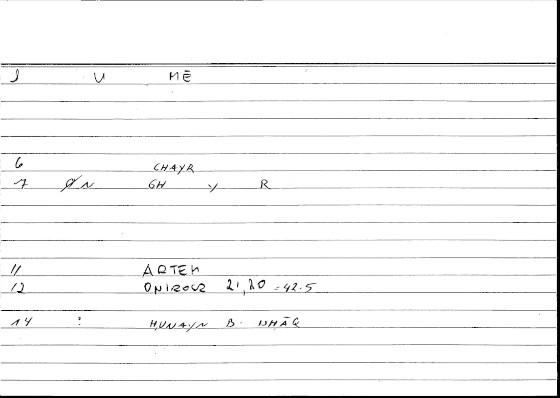 J U MĒ
6 CHAYR
7 ØN GH Y R
11 ARTEM
12 ONIROCR 21,20 = 42.5
14 : ḤUNAYN B. ISHĀQ